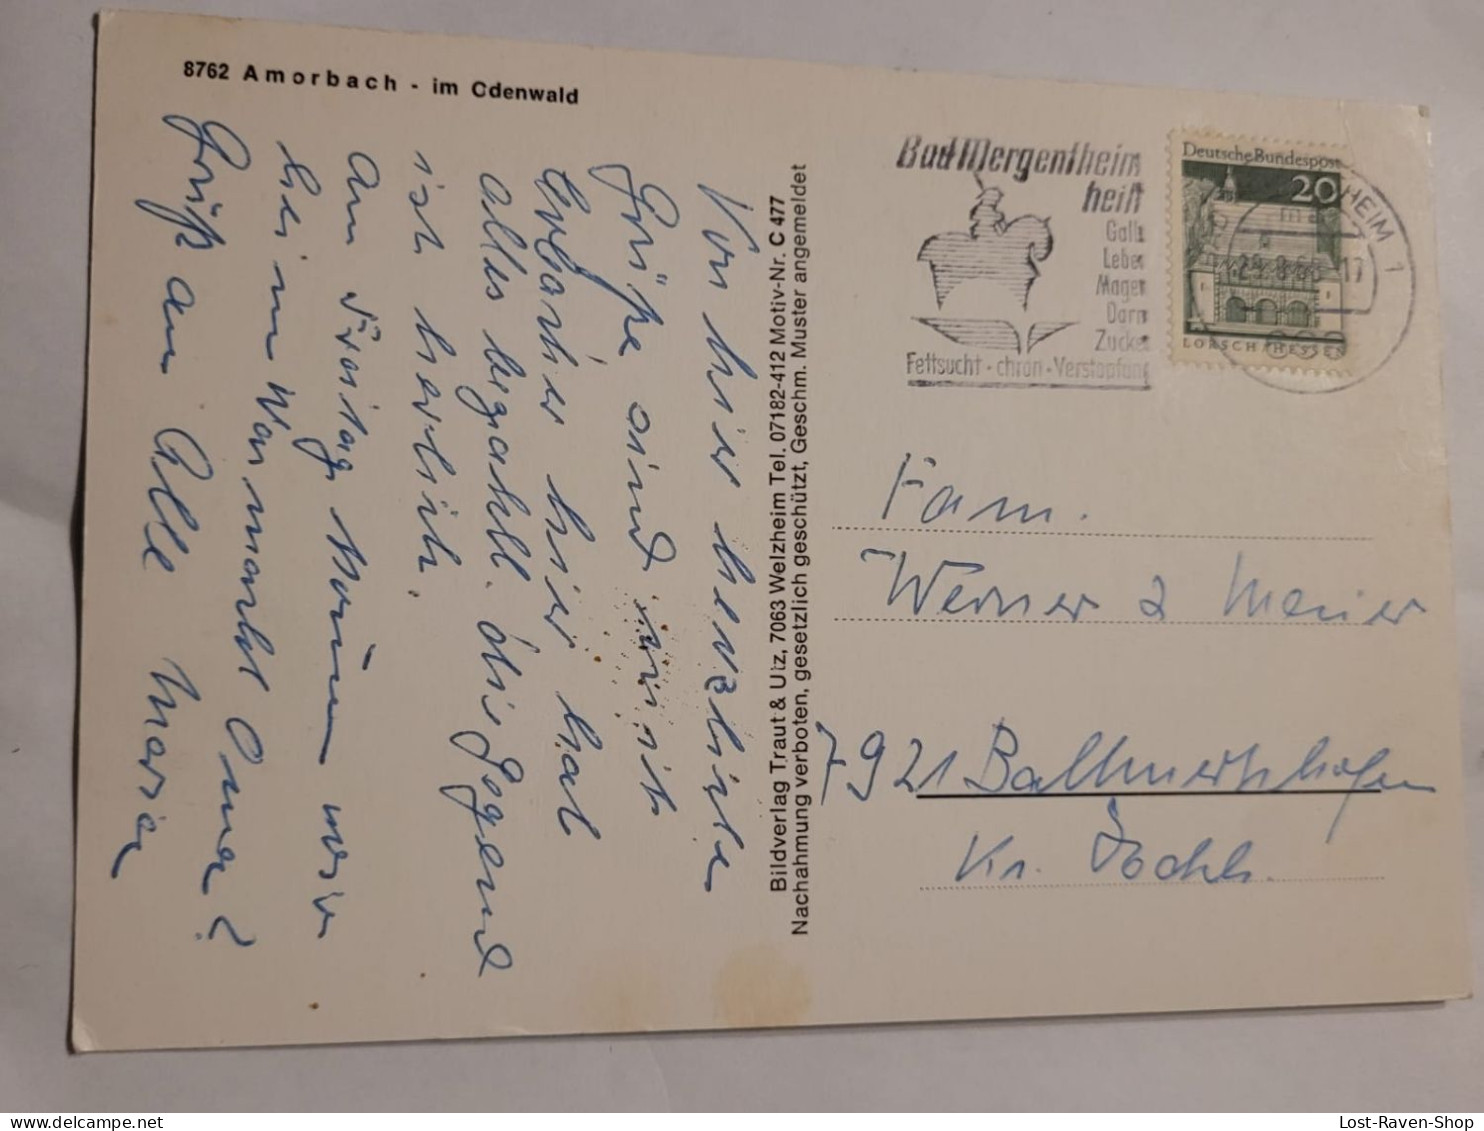 8762 Amorbach - im Odenwald
Von hier herzliche
Grüße sind
hier hat
alles bezahlt. die Gegend
ist herlich.
am Freitag wir
beim Oma?
Gruß an Alle
Bildverlag Traut & Utz, 7063 Welzheim Tel. 07182-412 Motiv-Nr. C 477
Nachahmung verboten, gesetzlich geschützt, Geschm. Muster angemeldet
Bad Mergentheim
heilt
Galle
Leber
Magen
Darm
Zucker
Fettsucht · chron · Verstopfung
Deutsche Bundespost
20
LORSCH / HESSEN
HEIM 1
Fam.
Werner
7921 Ballmertshofen
Kr.
Lost-Raven-Shop